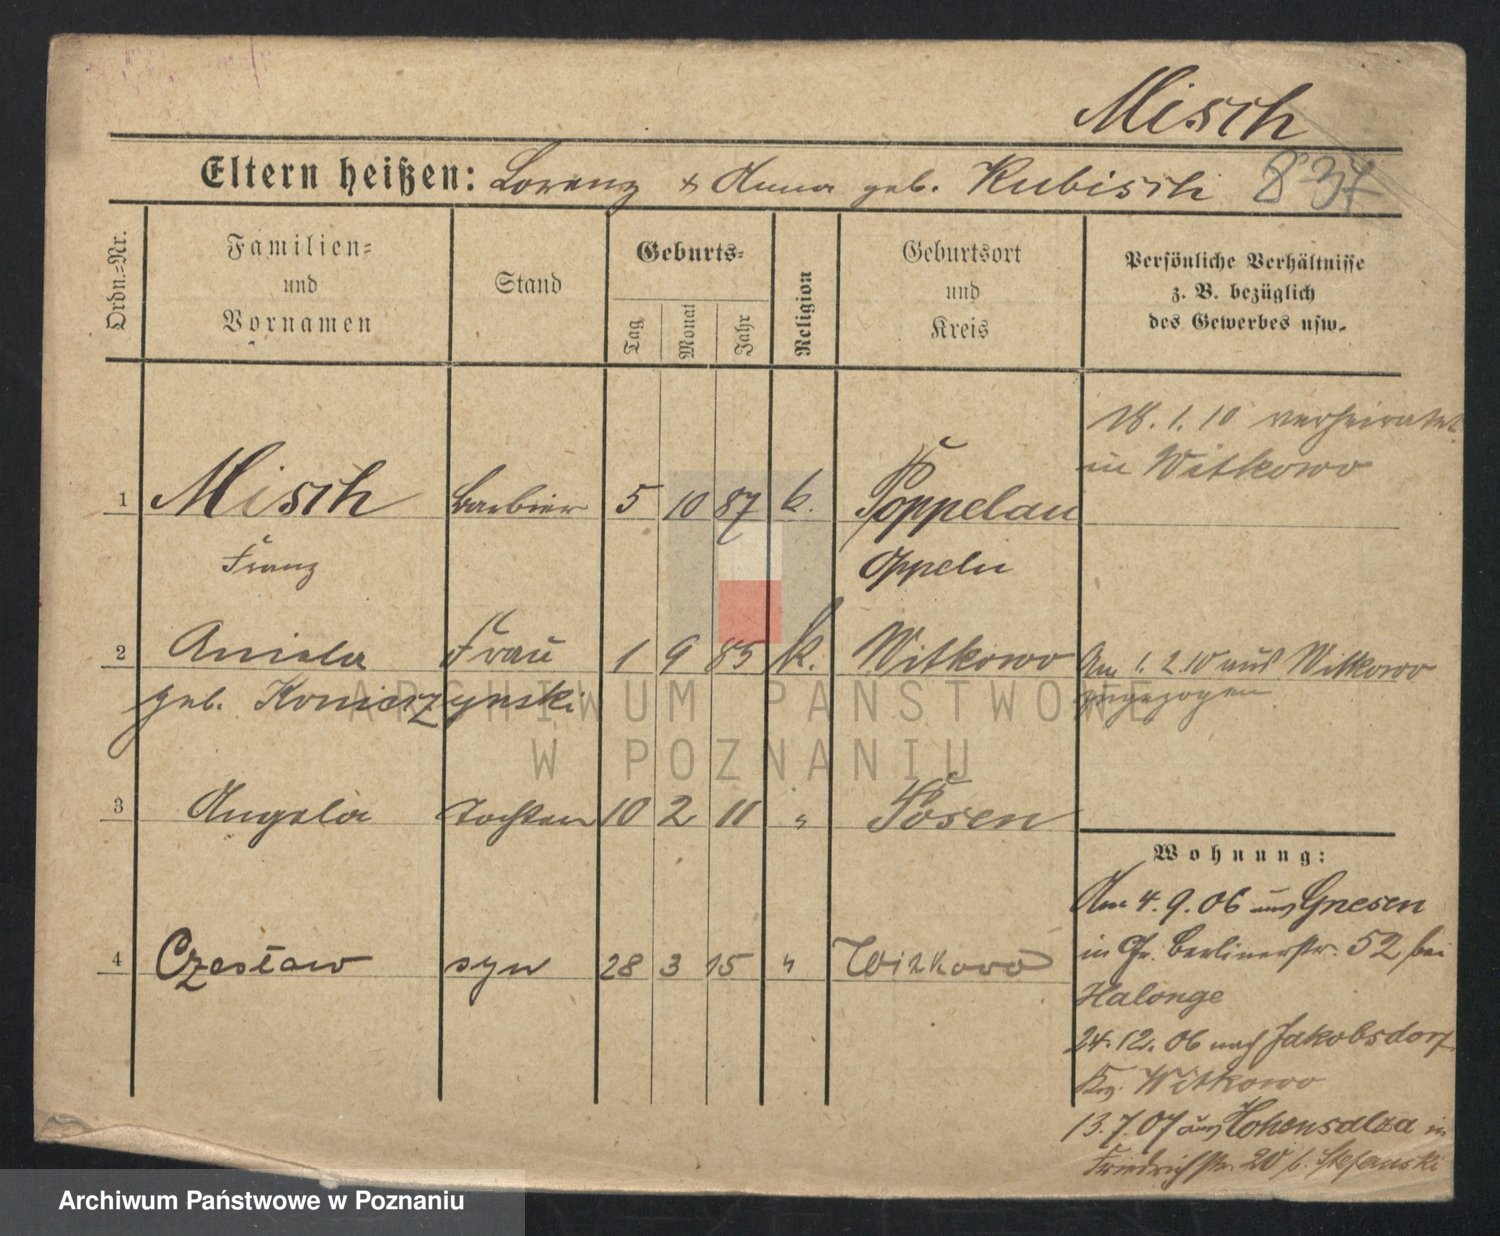 Misch
Eltern heißen: Lorenz & Anna geb. Kubisch 837
Ordn.=Nr.
Familien=
und
Vornamen
Stand
Geburts=
Tag
Monat
Jahr
Religion
Geburtsort
und
Kreis
Persönliche Verhältnisse
z. B. bezüglich
des Gewerbes usw.
18. 1. 10 verheiratet
in Witkowo
1 Misch Barbier 5 10 87 k. Poppelau
Franz Oppeln
2 Aniela Frau 1 9 85 k. Witkowo Am 1. 2. 10 aus Witkowo
geb. Konierzynski zugezogen
3 Angela Tochter 10 2 11 " Posen
4 Czesław syn 28 3 15 " Witkowo
Wohnung:
Am 4. 9. 06 aus Gnesen
in Gr. Berlinerstr. 52 bei
Halonge
24. 12. 06 nach Jakobsdorf
Krs. Witkowo
13. 7. 07 aus Hohensalza in
Friedrichstr. 20 b. Stefanski
ARCHIWUM PAŃSTWOWE
W POZNANIU
Archiwum Państwowe w Poznaniu